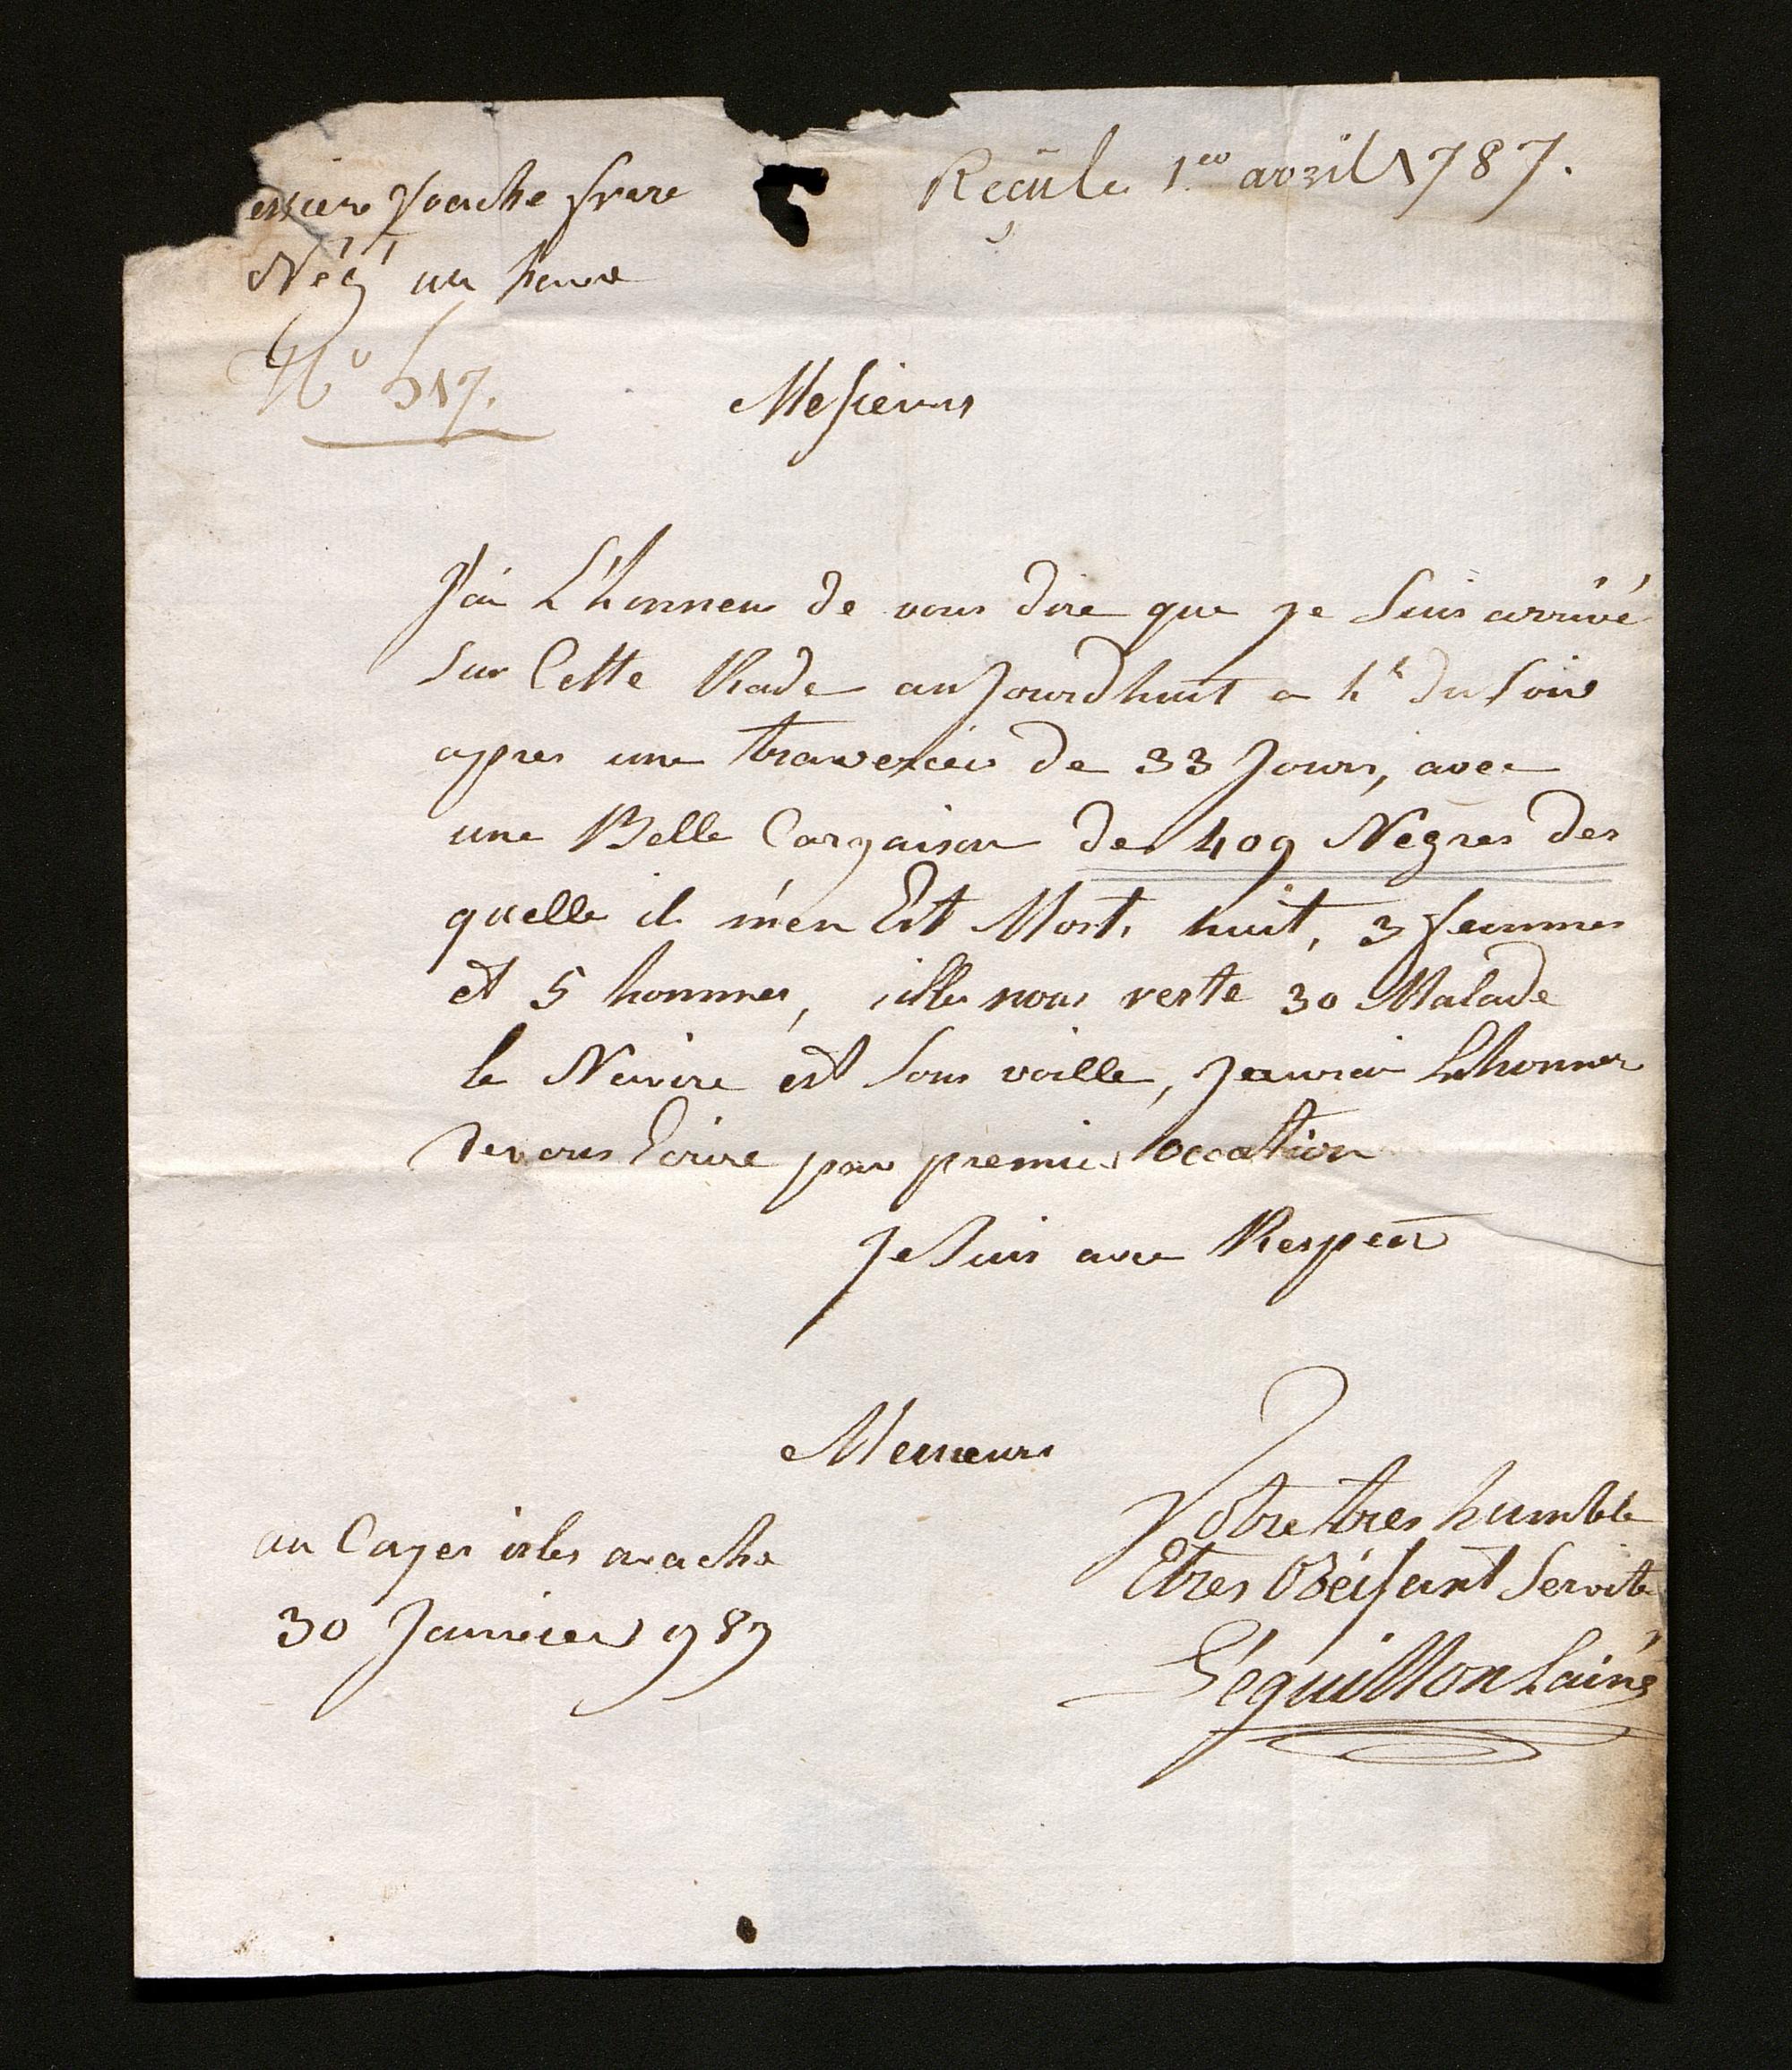 essieurs foache frere
Reçü le 1er avril 1787.
Négt au havre
No 517.
Messieurs
J'ai L'honneur de vous dire que je Suis arrivé
Sur Cette Rade aujourdhuit a 4h du Soir
apres une traversée de 33 Jours, avec
une Belle Cargaison de 409 Nègres des
quelle il m'en Est Mort, huit, 3 femmes
et 5 hommes, ille nous reste 30 Malade
le Navire est Sous voille, Jaurai Lhonner
de vous Ecrire par premier occation
Je Suis avec Respect
Messieurs
Votre tres humble
au Cayes isles avache
Etres Obéisant Servite
30 Janvier 787
L'éguillon Lainé